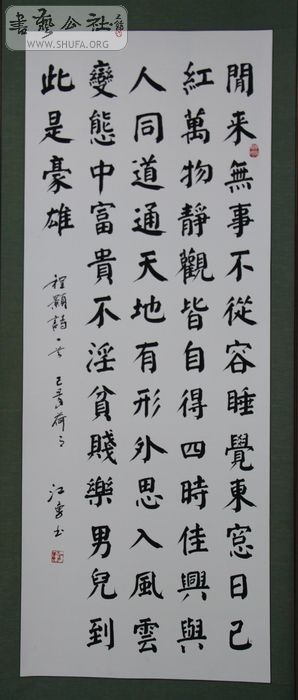 書藝公社
WWW.SHUFA.ORG
閒来無事不從容睡覺東窓日已
紅萬物靜觀皆自得四時佳興與
人同道通天地有形外思入風雲
變態中富貴不淫貧賤樂男兒到
此是豪雄
程顥詩一首